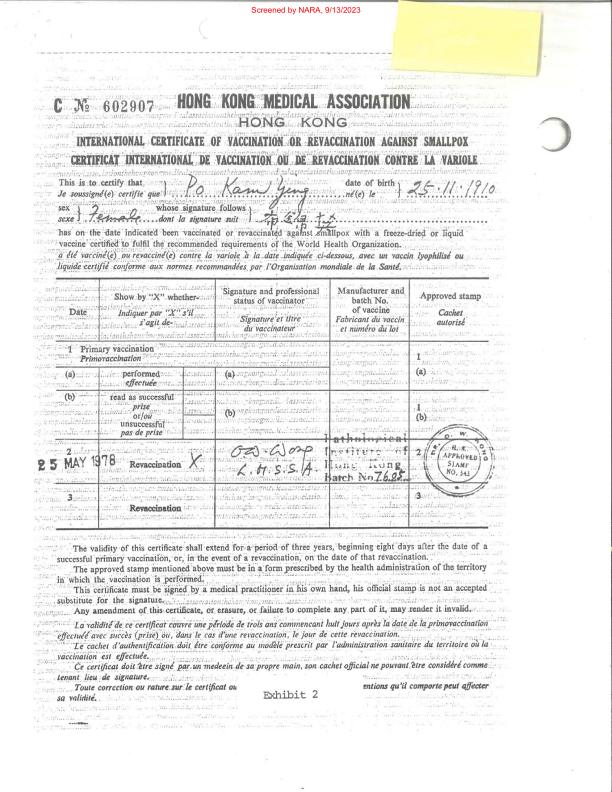 Screened by NARA, 9/13/2023
C № 602907 HONG KONG MEDICAL ASSOCIATION
HONG KONG
INTERNATIONAL CERTIFICATE OF VACCINATION OR REVACCINATION AGAINST SMALLPOX
CERTIFICAT INTERNATIONAL DE VACCINATION OU DE REVACCINATION CONTRE LA VARIOLE
This is to certify that date of birth
Je soussigné(e) certifie que Po Kam Ying né(e) le 25.11.1910
sex whose signature follows
sexe Female dont la signature suit
has on the date indicated been vaccinated or revaccinated against smallpox with a freeze-dried or liquid
vaccine certified to fulfil the recommended requirements of the World Health Organization.
a été vacciné(e) ou revacciné(e) contre la variole à la date indiquée ci-dessous, avec un vaccin lyophilisé ou
liquide certifié conforme aux normes recommandées par l'Organisation mondiale de la Santé.
Date
Show by "X" whether-
Indiquer par "X" s'il
s'agit de-
Signature and professional
status of vaccinator
Signature et titre
du vaccinateur
Manufacturer and
batch No.
of vaccine
Fabricant du vaccin
et numéro du lot
Approved stamp
Cachet
autorisé
1 Primary vaccination 1
Primovaccination
(a) performed (a) (a)
effectuée
(b) read as successful
prise
or/ou (b) 1 (b)
unsuccessful
pas de prise
2 2
25 MAY 1978 Revaccination X
L.M.S.S.A.
Pathological
Institute of
Hong Kong
Batch No.
DR. O. W. WONG
H. K.
APPROVED
STAMP
NO. 543
3 3
Revaccination
The validity of this certificate shall extend for a period of three years, beginning eight days after the date of a
successful primary vaccination, or, in the event of a revaccination, on the date of that revaccination.
The approved stamp mentioned above must be in a form prescribed by the health administration of the territory
in which the vaccination is performed.
This certificate must be signed by a medical practitioner in his own hand, his official stamp is not an accepted
substitute for the signature.
Any amendment of this certificate, or erasure, or failure to complete any part of it, may render it invalid.
La validité de ce certificat couvre une période de trois ans commencant huit jours après la date de la primovaccination
effectuée avec succès (prise) ou, dans le cas d'une revaccination, le jour de cette revaccination.
Le cachet d'authentification doit être conforme au modèle prescrit par l'administration sanitaire du territoire où la
vaccination est effectuée.
Ce certificat doit être signé par un medecin de sa propre main, son cachet official ne pouvant être considéré comme
tenant lieu de signature.
Toute correction ou rature sur le certificat ou entions qu'il comporte peut affecter
sa validité.
Exhibit 2